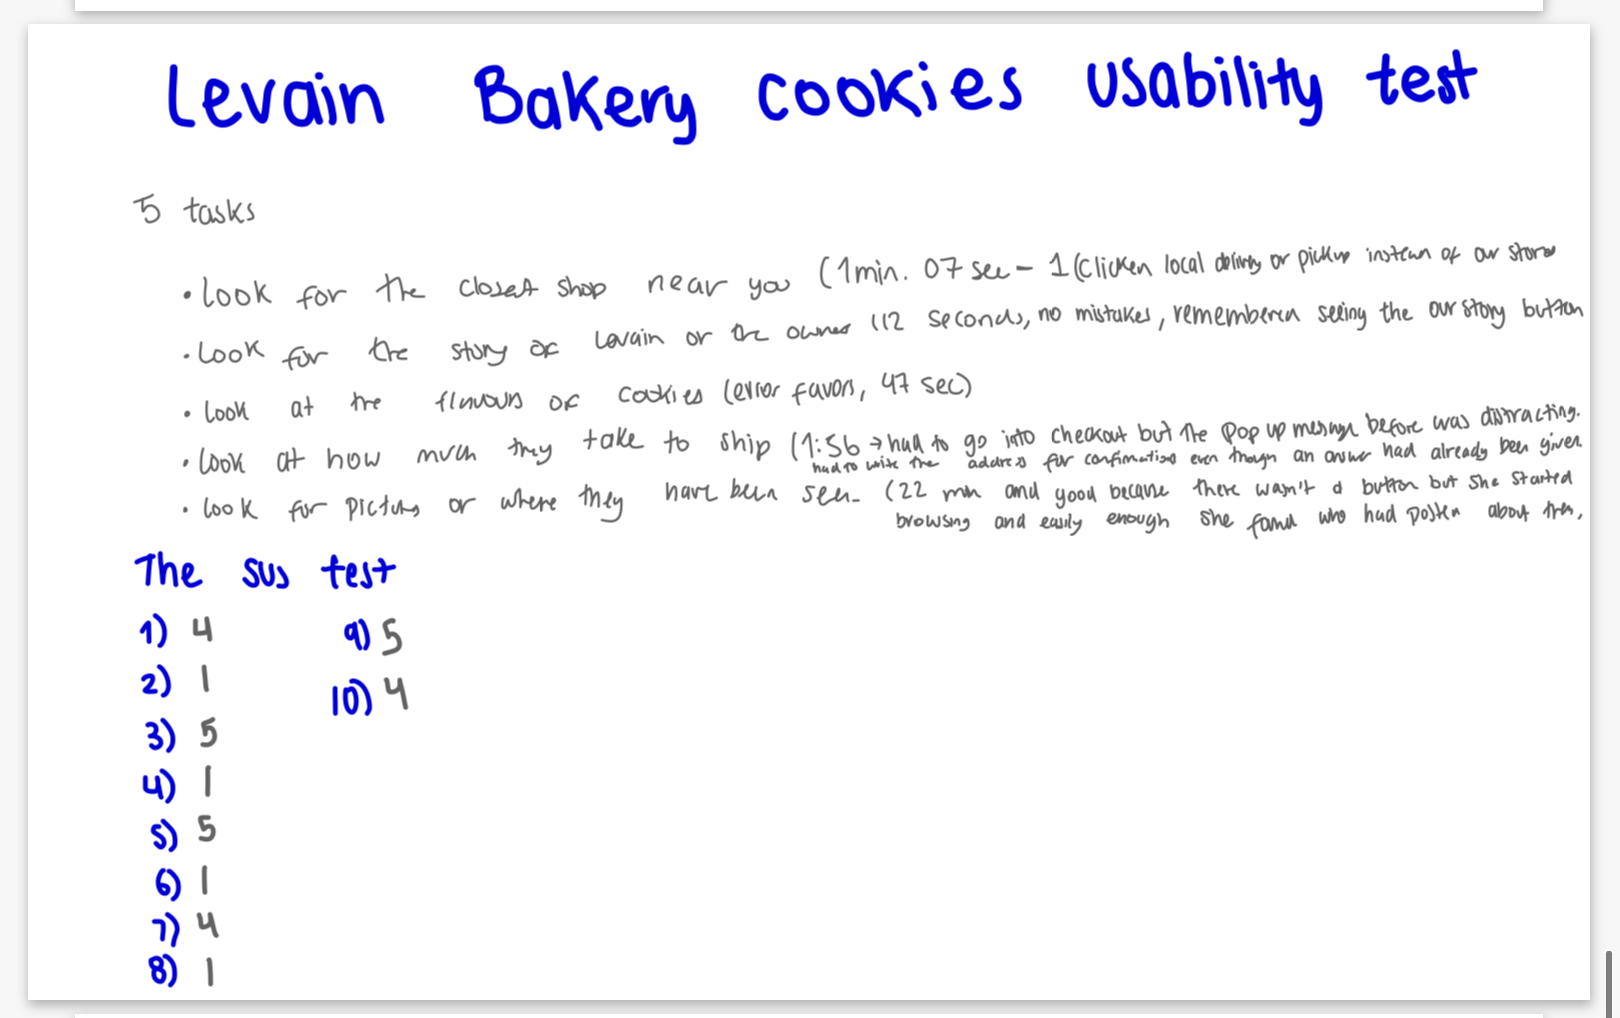 Levain Bakery cookies usability test
5 tasks
• Look for the closest shop near you (1min. 07 sec - 1 (clicken local delivery or pickup instean of our stores
• Look for the story of Levain or the owner (12 seconds, no mistakes, rememberen seeing the our story button
• Look at the flavours of cookies (error favors, 47 sec)
• Look at how much they take to ship (1:56 → had to go into checkout but the Pop up message before was distracting.
had to write the address for confirmation even though an answer had already been given
• Look for pictures or where they have been seen. (22 min and good because there wasn't a button but she started
browsing and easily enough she found who had posten about them,
The sus test
1) 4
2) 1
3) 5
4) 1
5) 5
6) 1
7) 4
8) 1
9) 5
10) 4